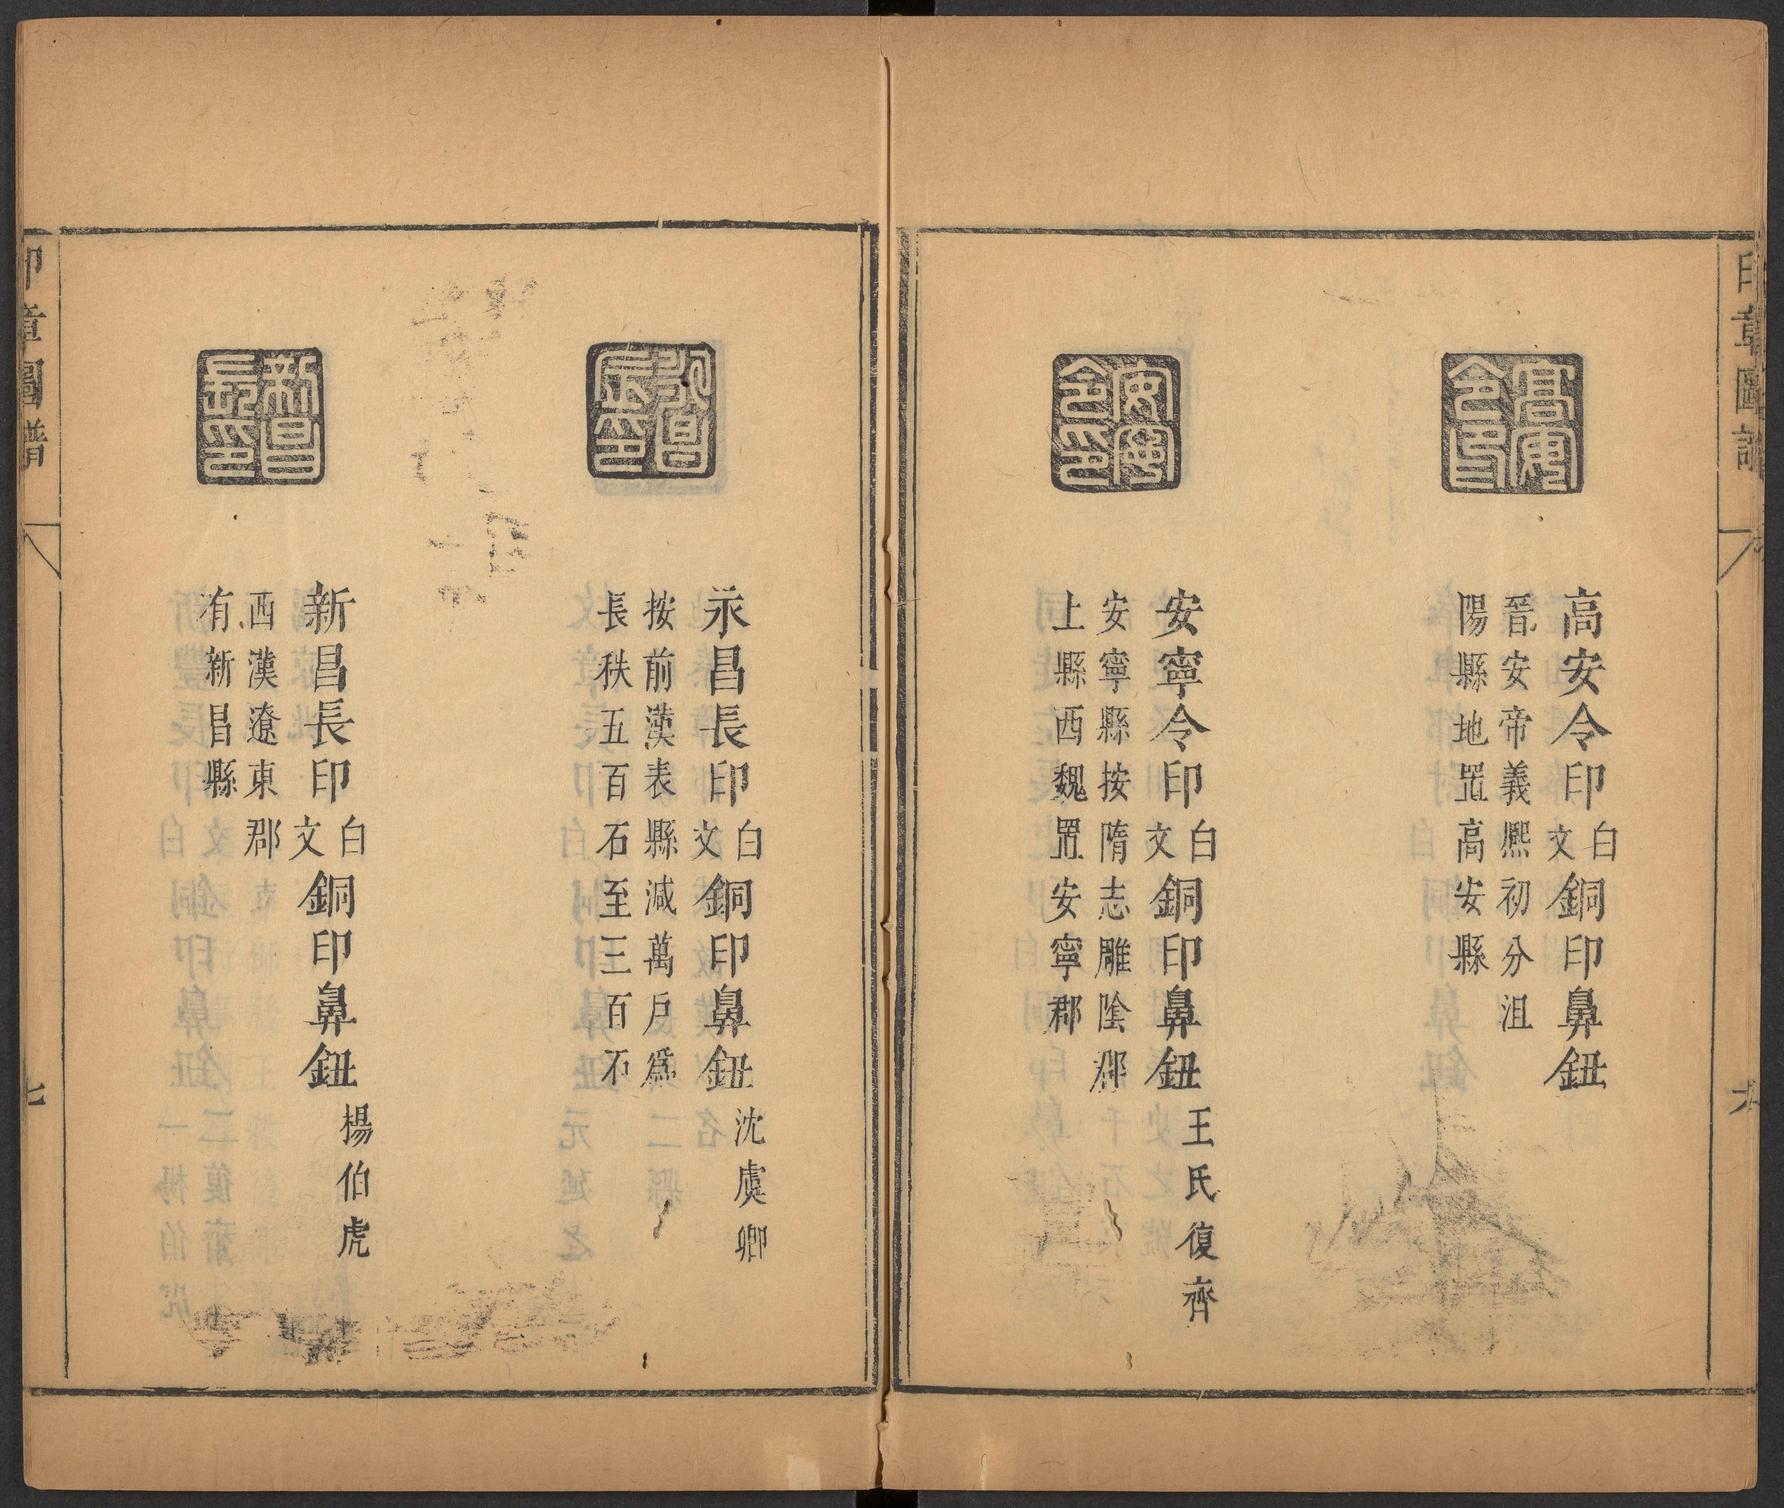 印章圖譜
六
高安令印
高安令印白文銅印鼻鈕
晉安帝義熙初分沮
陽縣地置高安縣
安寧令印
安寧令印白文銅印鼻鈕王氏復齊
安寧縣按隋志雕陰郡
上縣西魏置安寧郡
永昌長印
永昌長印白文銅印鼻鈕沈虞卿
按前漢表縣減萬戶爲
長秩五百石至三百石
新昌長印
新昌長印白文銅印鼻鈕楊伯虎
西漢遼東郡
有新昌縣
印章圖譜
七